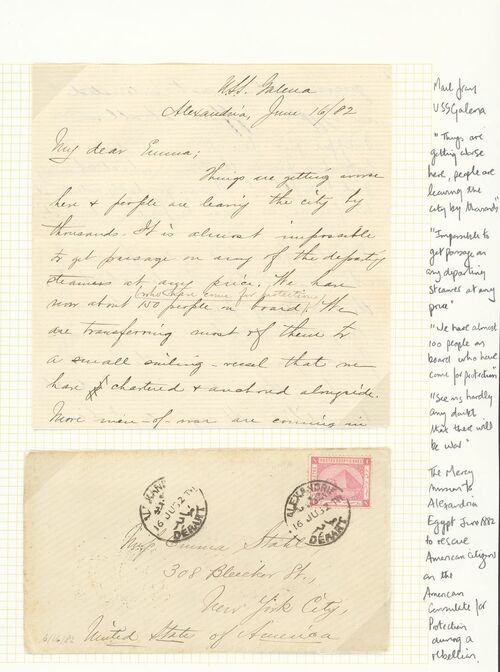 U.S.S. Galena
Alexandria, June 16/82
My dear Emma;
Things are getting worse
here & people are leaving the city by
thousands. It is almost impossible
to get passage on any of the departing
steamers at any price. We have
(who have come for protection)
now about 150 people on board. We
are transferring most of them to
a small sailing-vessel that we
have chartered & anchored alongside.
More men-of-war are coming in
ALEXANDRIE
16 JU 82
DEPART
ALEXANDRIE
16 JU 82
DEPART
Miss Emma
308 Bleecker St.,
New York City,
United States of America
6/16/82
Mail from
USS Galena
"Things are
getting worse
here, people are
leaving the
city by thousands"
"Impossible to
get passage on
any departing
steamer at any
price"
"We have almost
100 people on
board who have
come for protection"
"Seems hardly
any doubt
that there will
be war"
The Mercy
to
Alexandria
Egypt June 1882
to rescue
American citizens
on the
American
Consulate for
Protection
during a
rebellion.